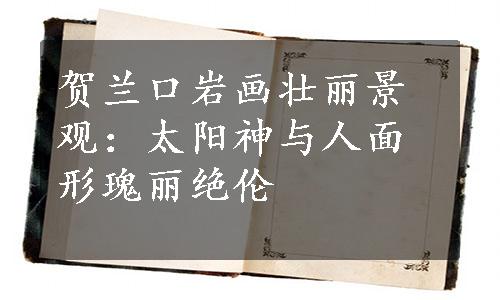 贺兰口岩画壮丽景
观：太阳神与人面
形瑰丽绝伦